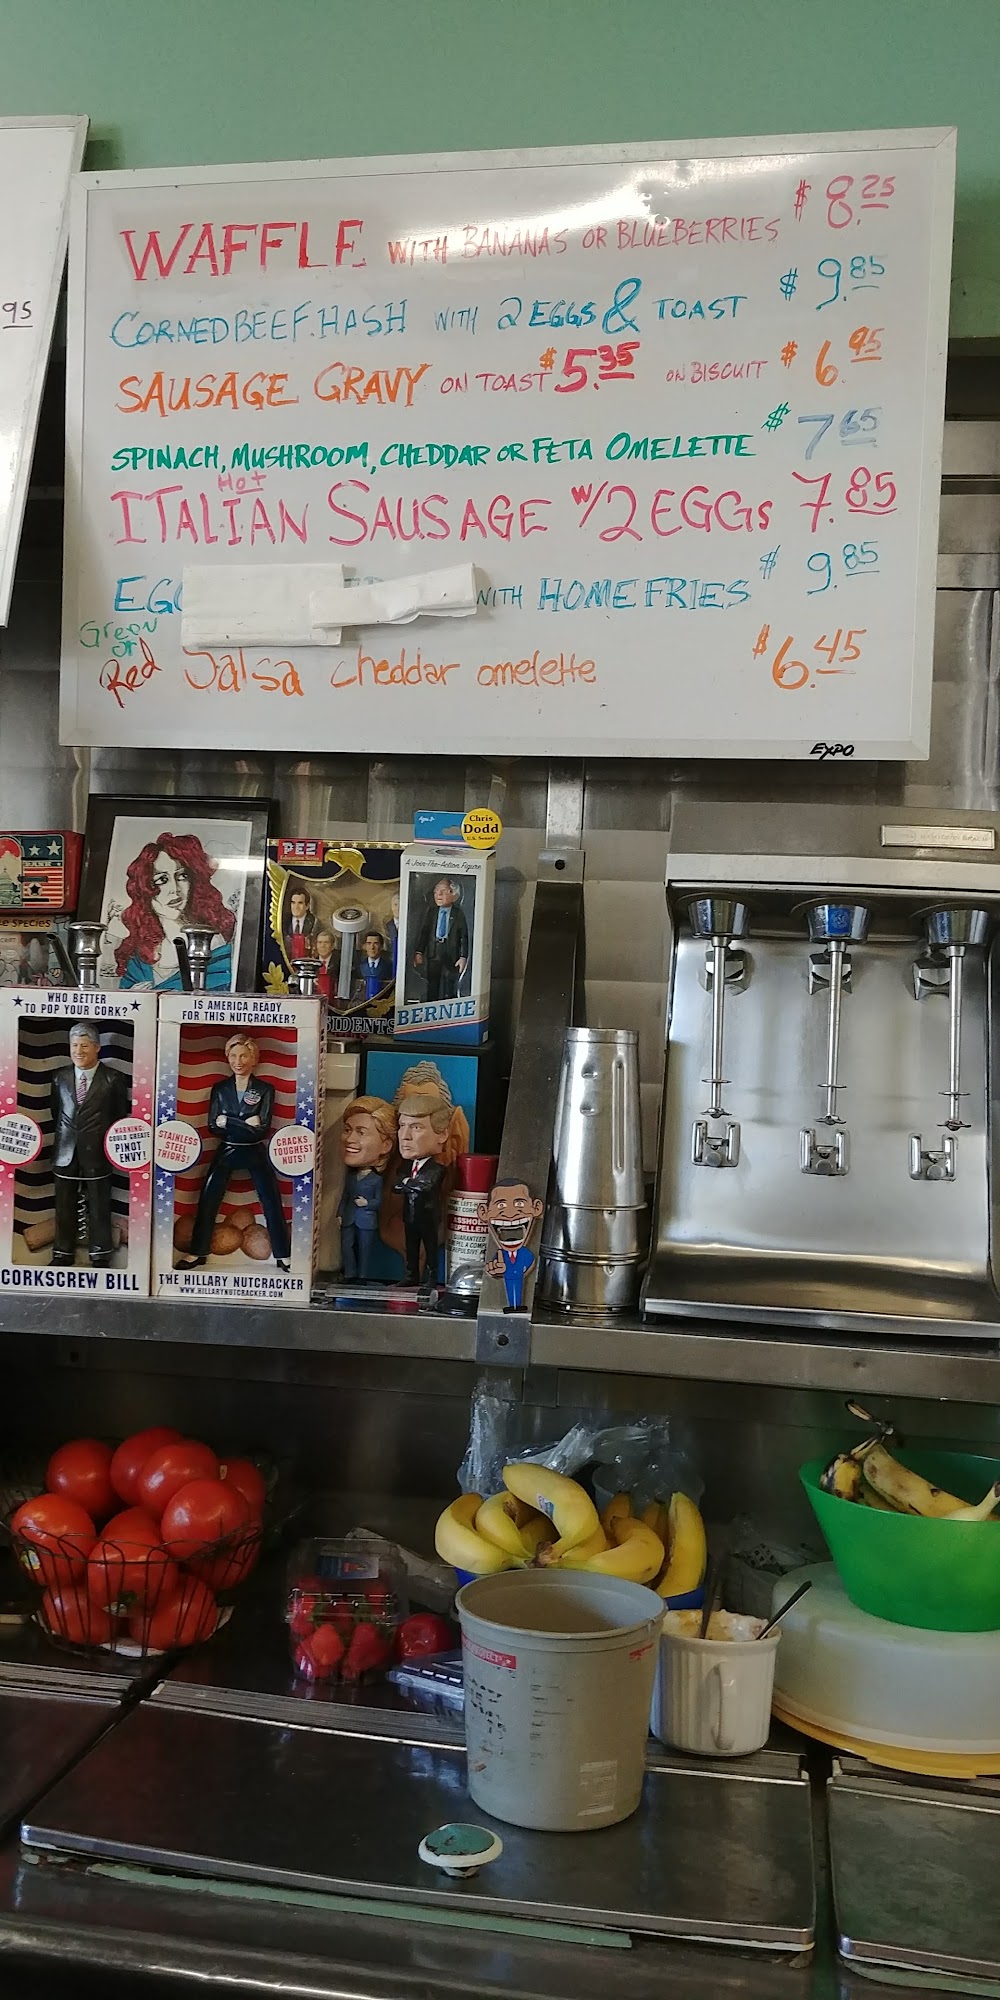 WAFFLE WITH BANANAS OR BLUEBERRIES $ 8.25
CORNED BEEF HASH WITH 2 EGGS & TOAST $ 9.85
SAUSAGE GRAVY ON TOAST $5.35 ON BISCUIT $ 6.95
SPINACH, MUSHROOM, CHEDDAR OR FETA OMELETTE $ 7.65
Hot
ITALIAN SAUSAGE W/2 EGGS 7.85
WITH HOME FRIES $ 9.85
Green
or
Red Salsa Cheddar omelette $6.45
EXPO
95
BANK
SPECIES
PEZ
Chris
Dodd
U.S. Senate
A Join-The-Action Figure
BERNIE
WHO BETTER
TO POP YOUR CORK?
THE NEW
ACTION HERO
FOR WINE
DRINKERS!
WARNING:
COULD CREATE
PINOT
ENVY!
CORKSCREW BILL
IS AMERICA READY
FOR THIS NUTCRACKER?
STAINLESS
STEEL
THIGHS!
CRACKS
TOUGHEST
NUTS!
THE HILLARY NUTCRACKER
WWW.HILLARYNUTCRACKER.COM
REPELLENT
GUARANTEED